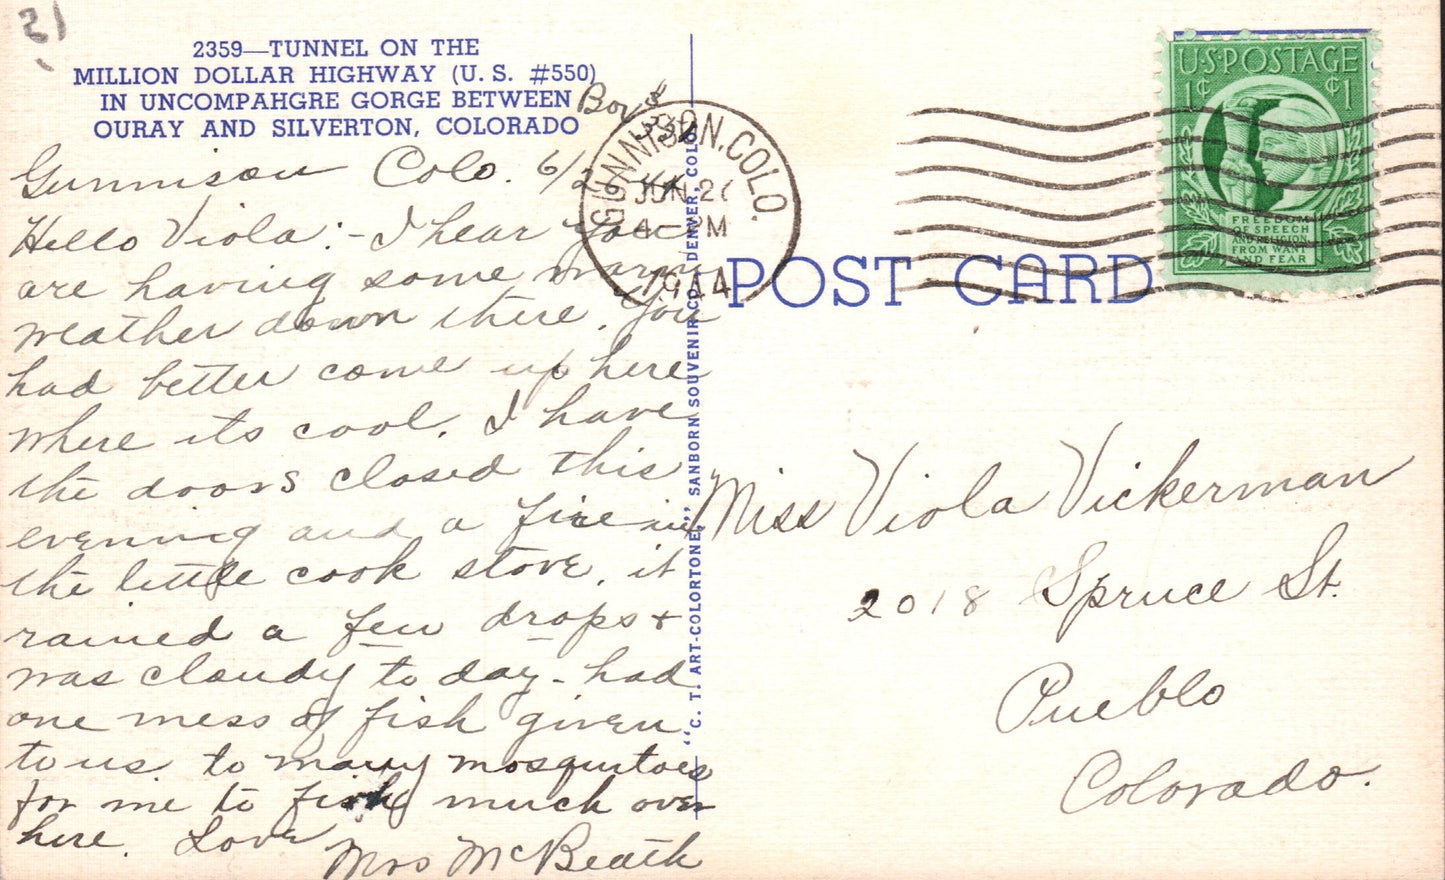 21
2359—TUNNEL ON THE
MILLION DOLLAR HIGHWAY (U. S. #550)
IN UNCOMPAHGRE GORGE BETWEEN
OURAY AND SILVERTON, COLORADO
Box
Gunnison Colo. 6/2
Hello Viola:- I hear you
are having some warm
weather down there. You
had better come up here
where its cool. I have
the doors closed this
evening and a fire in
the little cook stove, it
rained a few drops +
was cloudy to day - had
one mess of fish given
to us to many mosquitoes
for me to fish much over
here. Love
Mrs McBeath
GUNNISON, COLO.
JUN 2
4-PM
1944
"C. T. ART-COLORTONE," SANBORN SOUVENIR CO., DENVER, COL
POST CARD
U·S·POSTAGE
1¢ ¢1
FREEDOM
OF SPEECH
AND RELIGION,
FROM WANT
AND FEAR
Miss Viola Vickerman
2018 Spruce St.
Pueblo
Colorado.